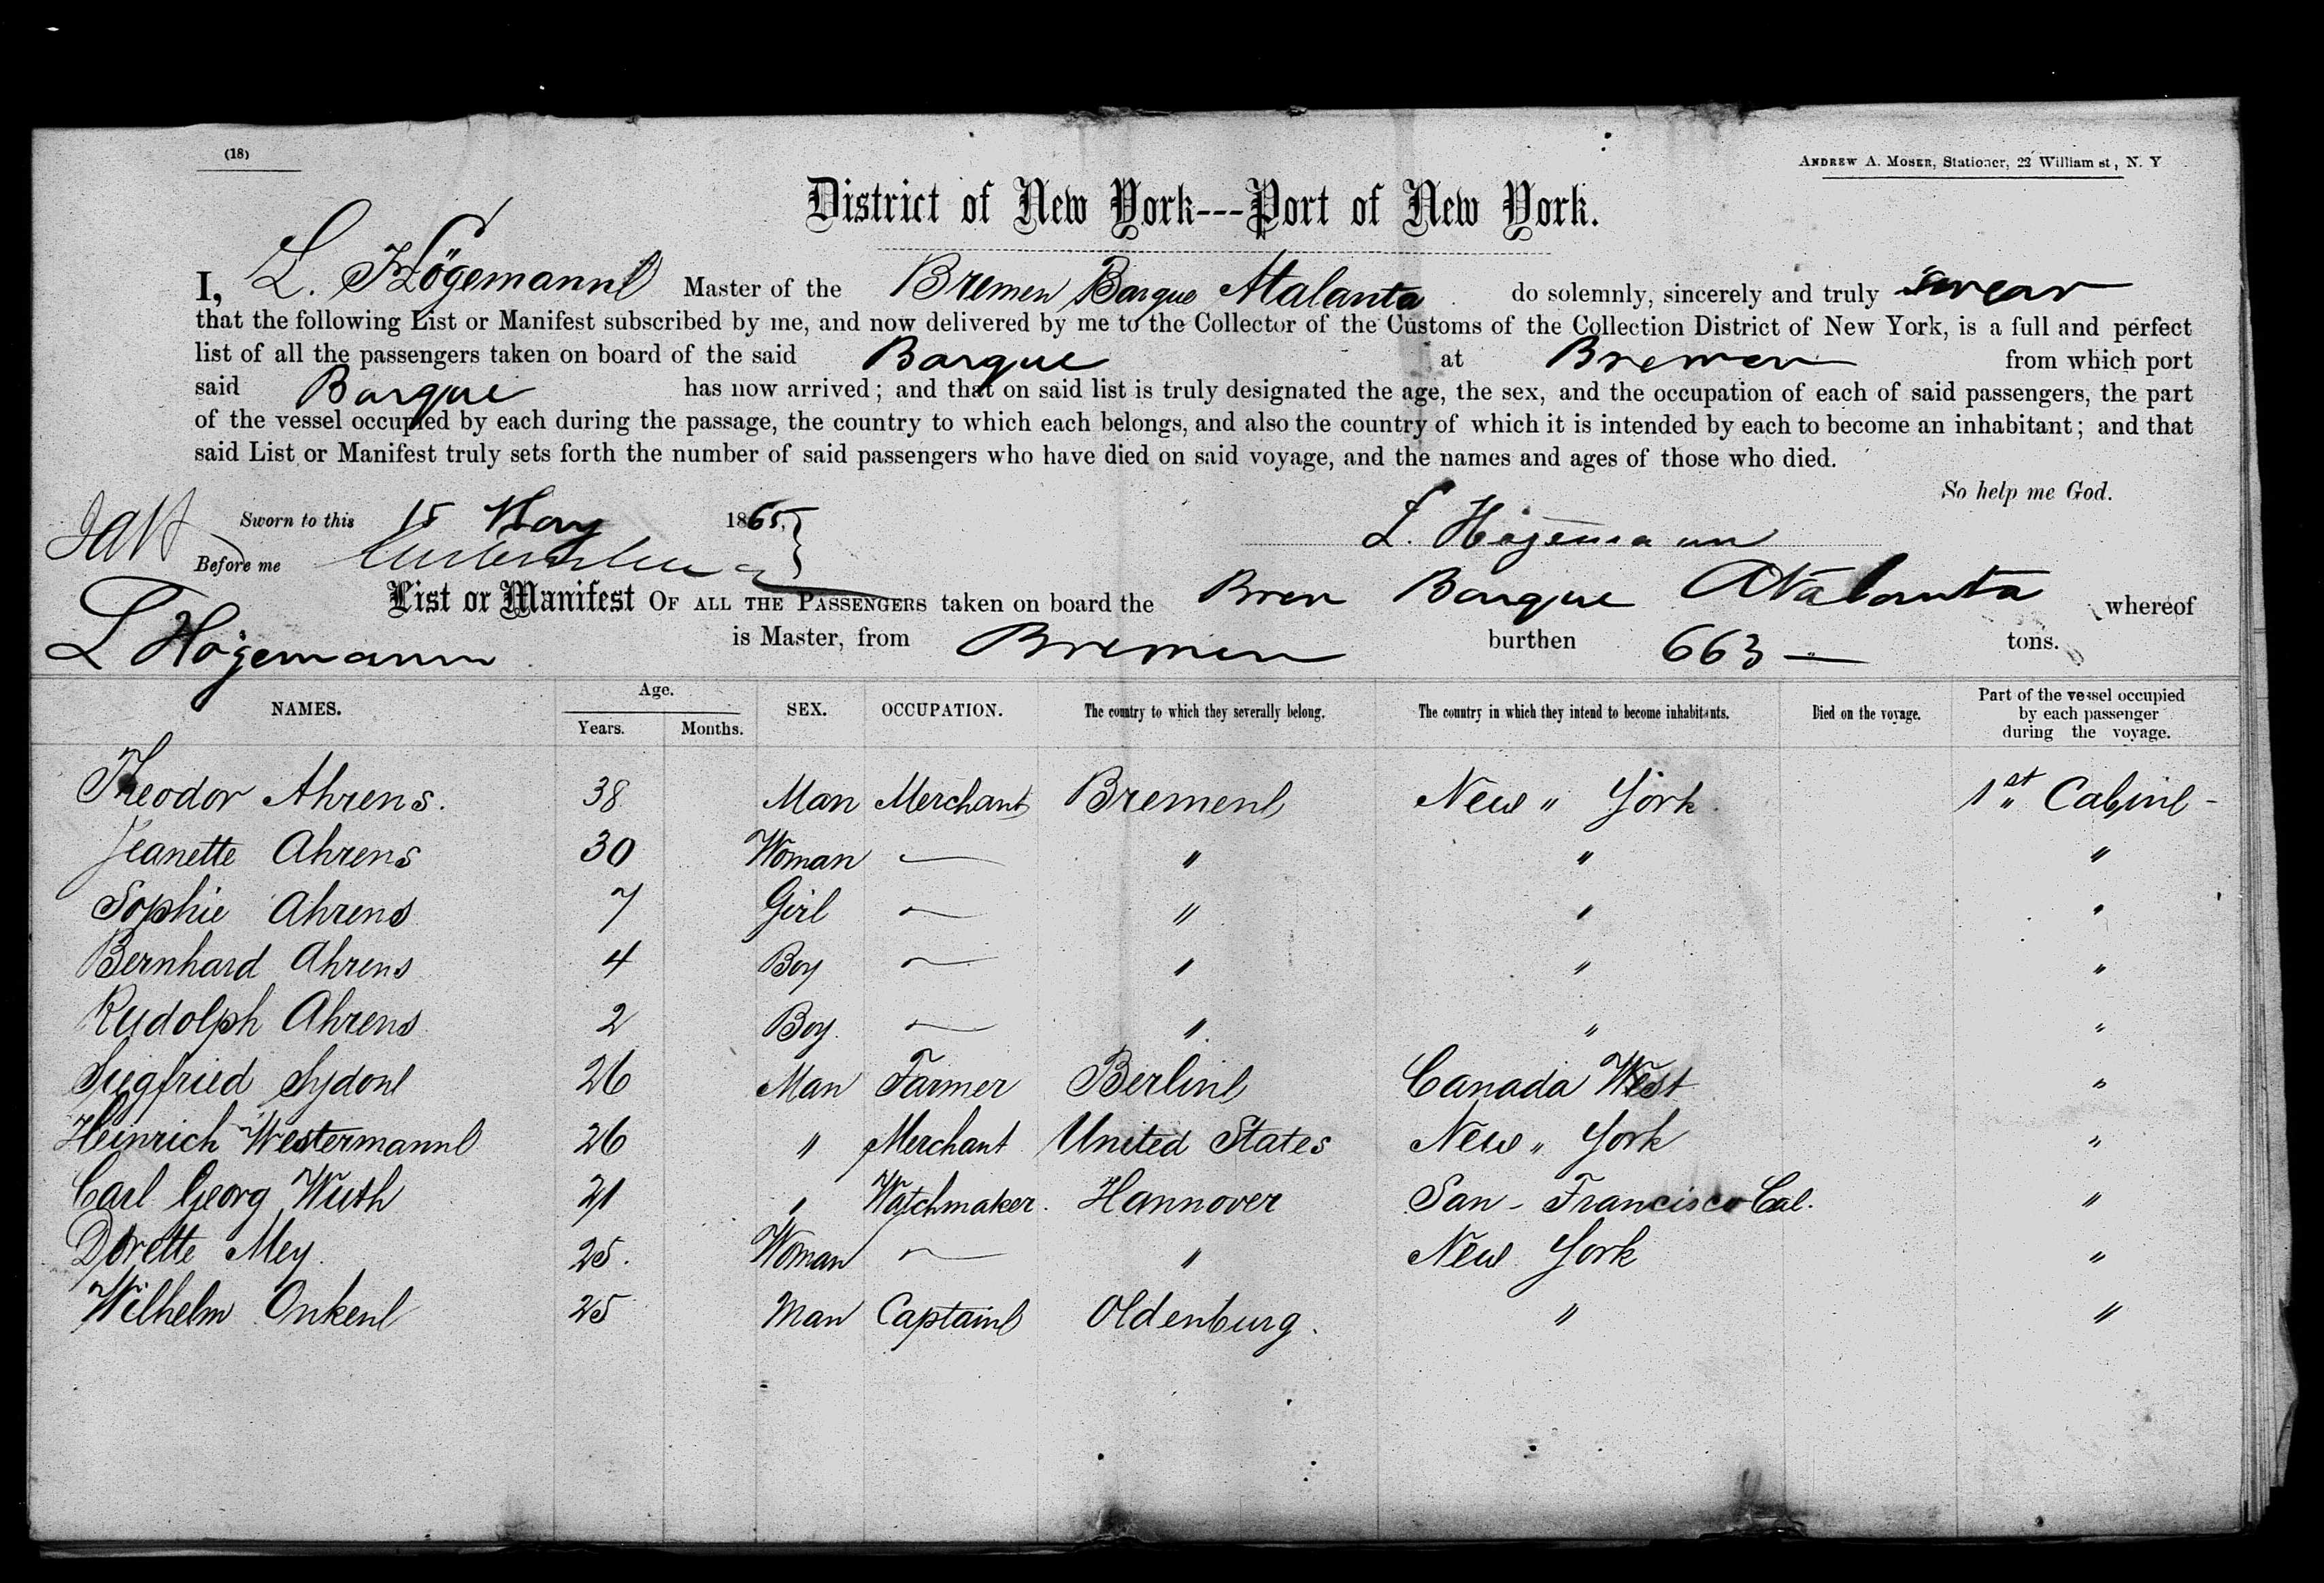 (18)
ANDREW A. MOSER, Stationer, 23 William st, N. Y
District of New York---Port of New York.
I, L. Högemann Master of the Bremen Barque Atalanta do solemnly, sincerely and truly swear
that the following List or Manifest subscribed by me, and now delivered by me to the Collector of the Customs of the Collection District of New York, is a full and perfect
list of all the passengers taken on board of the said Barque at Bremen from which port
said Barque has now arrived; and that on said list is truly designated the age, the sex, and the occupation of each of said passengers, the part
of the vessel occupied by each during the passage, the country to which each belongs, and also the country of which it is intended by each to become an inhabitant; and that
said List or Manifest truly sets forth the number of said passengers who have died on said voyage, and the names and ages of those who died.
So help me God.
Sworn to this 15 May 1865 L. Högemann
Before me
List or Manifest OF ALL THE PASSENGERS taken on board the Brem Barque Atalanta whereof
L Högemann is Master, from Bremen burthen 663 — tons.
NAMES. Age. Years. Months. SEX. OCCUPATION. The country to which they severally belong. The country in which they intend to become inhabitants. Died on the voyage. Part of the vessel occupied by each passenger during the voyage.
Theodor Ahrens. 38 Man Merchant Bremen New " York. 1st Cabin -
Jeanette Ahrens 30 Woman — " " "
Sophie Ahrens 7 Girl — " " "
Bernhard Ahrens 4 Boy — " " "
Rudolph Ahrens 2 Boy — " " "
Siegfried Sydon 26 Man Farmer Berlin Canada West "
Heinrich Westermann 26 " Merchant United States New " York "
Carl Georg Wuth 21 " Watchmaker. Hannover San - Francisco Cal. "
Dorette Mey. 25. Woman — " New York "
Wilhelm Onken 25 Man Captain Oldenburg. " "